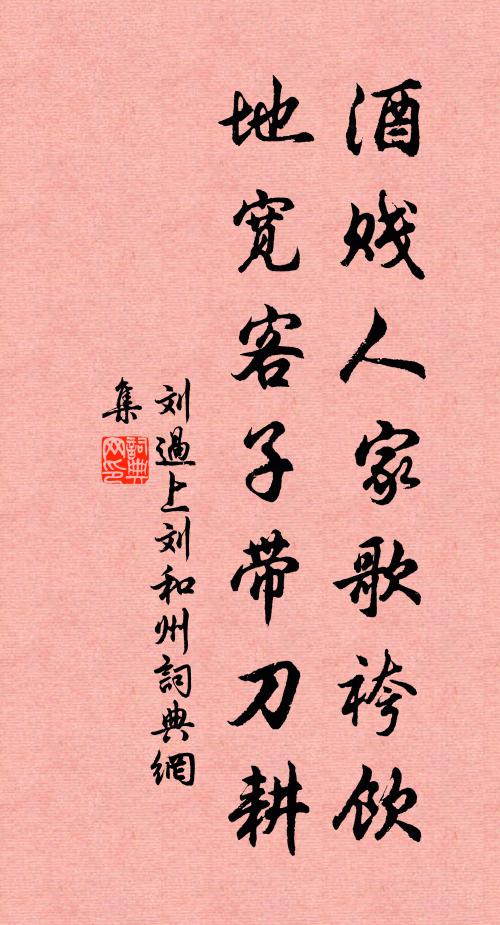 酒贱人家歌袴饮
地宽客子带刀耕
刘過上刘和州詞典網
集
詞典
网印